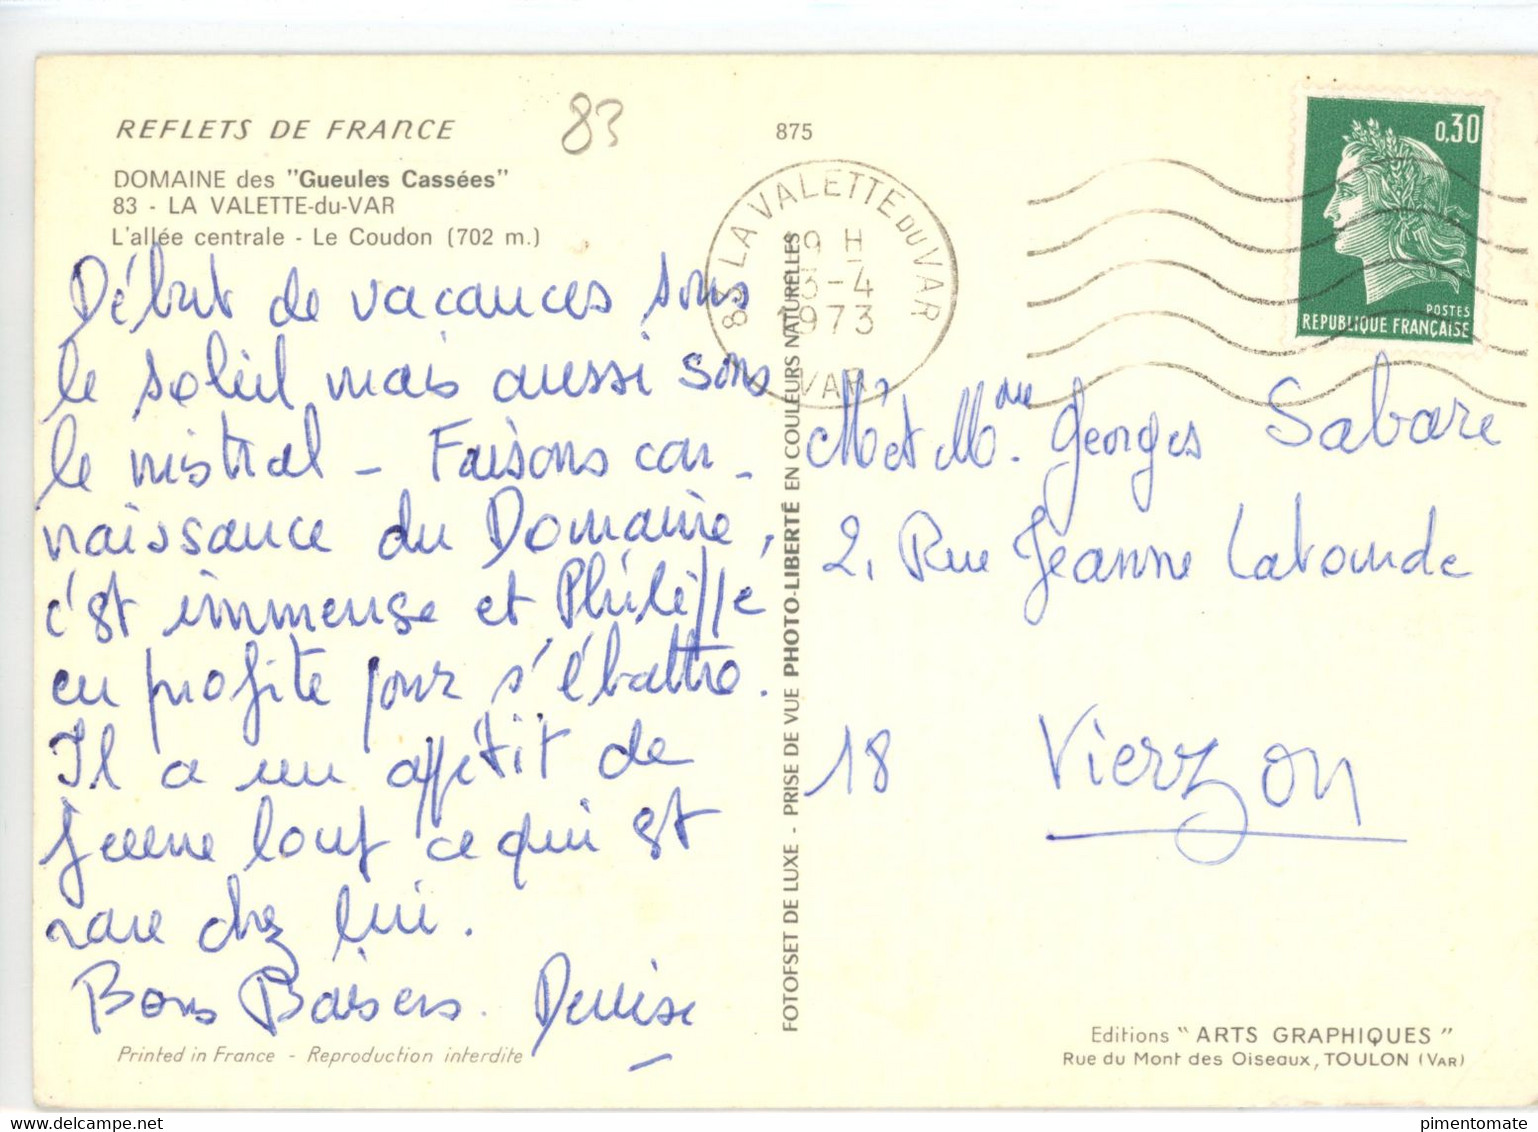 REFLETS DE FRANCE
83
875
DOMAINE des "Gueules Cassées"
83 - LA VALETTE-du-VAR
L'allée centrale - Le Coudon (702 m.)
Début de vacances sous
le soleil mais aussi sous
le mistral - Faisons con-
naissance du Domaine,
c'est immense et Philippe
en profite pour s'ébattre.
Il a un appétit de
jeune loup ce qui est
rare chez lui.
Bons Baisers. Denise
Printed in France - Reproduction interdite
FOTOFSET DE LUXE - PRISE DE VUE PHOTO-LIBERTÉ EN COULEURS NATURELLES
83 LA VALETTE DU VAR
19 H
13-4
1973
VAR
0,30
POSTES
REPUBLIQUE FRANÇAISE
Mr et Mme. Georges Sabare
2, Rue Jeanne Labourde
18 Vierzon
Editions "ARTS GRAPHIQUES"
Rue du Mont des Oiseaux, TOULON (VAR)
pimentomate